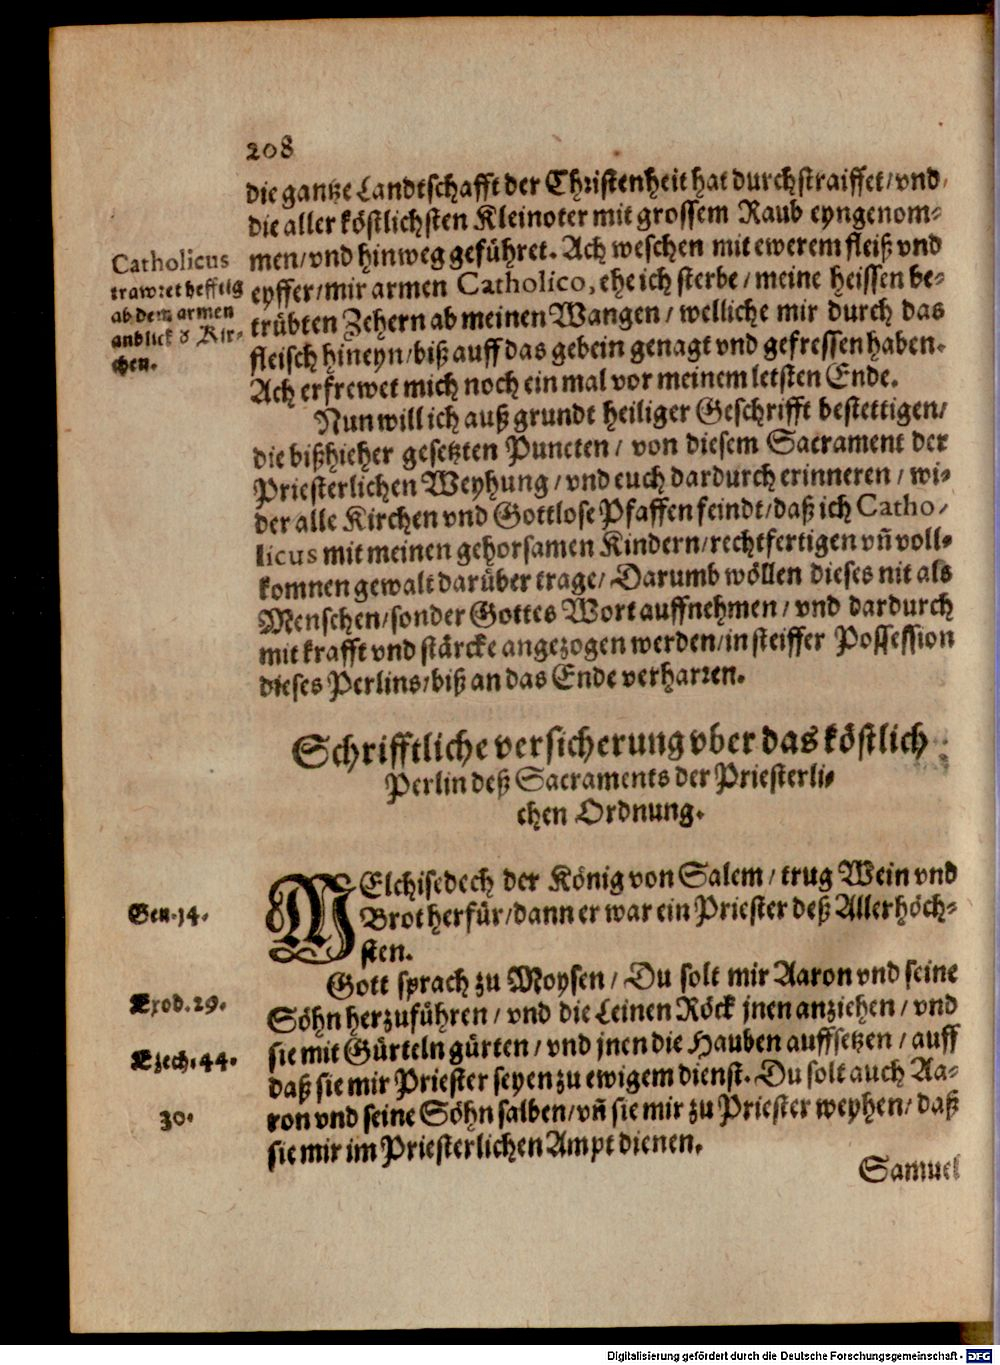 208
die gantze Landtschafft der Christenheit hat durchstraiffet/vnd
die aller köstlichsten Kleinoter mit grossem Raub eyngenom-
men/vnd hinweg geführet. Ach weschen mit ewerem fleiß vnd
eyffer/mir armen Catholico, ehe ich sterbe/meine heissen be-
trübten Zehern ab meinen Wangen/welliche mir durch das
fleisch hineyn/biß auff das gebein genagt vnd gefressen haben.
Ach erfrewet mich noch ein mal vor meinem letsten Ende.
Catholicus
trawret hefftig
ab dem armen
anblick d̕ Kir-
chen.
Nun will ich auß grundt heiliger Geschrifft bestettigen/
die bißhieher gesetzten Puncten/von diesem Sacrament der
Priesterlichen Weyhung/vnd euch dardurch erinneren/wi-
der alle Kirchen vnd Gottlose Pfaffenfeindt/daß ich Catho-
licus mit meinen gehorsamen Kindern/rechtfertigen vñ voll-
komnen gewalt darüber trage/Darumb wöllen dieses nit als
Menschen/sonder Gottes Wort auffnehmen/vnd dardurch
mit krafft vnd stärcke angezogen werden/in steiffer Possession
dieses Perlins/biß an das Ende verharren.
Schrifftliche versicherung vber das köstlich
Perlin deß Sacraments der Priesterli-
chen Ordnung.
MElchisedech der König von Salem/trug Wein vnd
Brot herfür/dann er war ein Priester deß Allerhöch-
sten.
Gen. 14.
Gott sprach zu Moysen/Du solt mir Aaron vnd seine
Söhn herzuführen/vnd die Leinen Röck jnen anziehen/vnd
sie mit Gürteln gürten/vnd jnen die Hauben auffsetzen/auff
daß sie mir Priester seyen zu ewigem dienst. Du solt auch Aa-
ron vnd seine Söhn salben/vñ sie mir zu Priester weyhen/daß
sie mir im Priesterlichen Ampt dienen.
Exod. 29.
Ezech. 44.
30.
Samuel
Digitalisierung gefördert durch die Deutsche Forschungsgemeinschaft - DFG